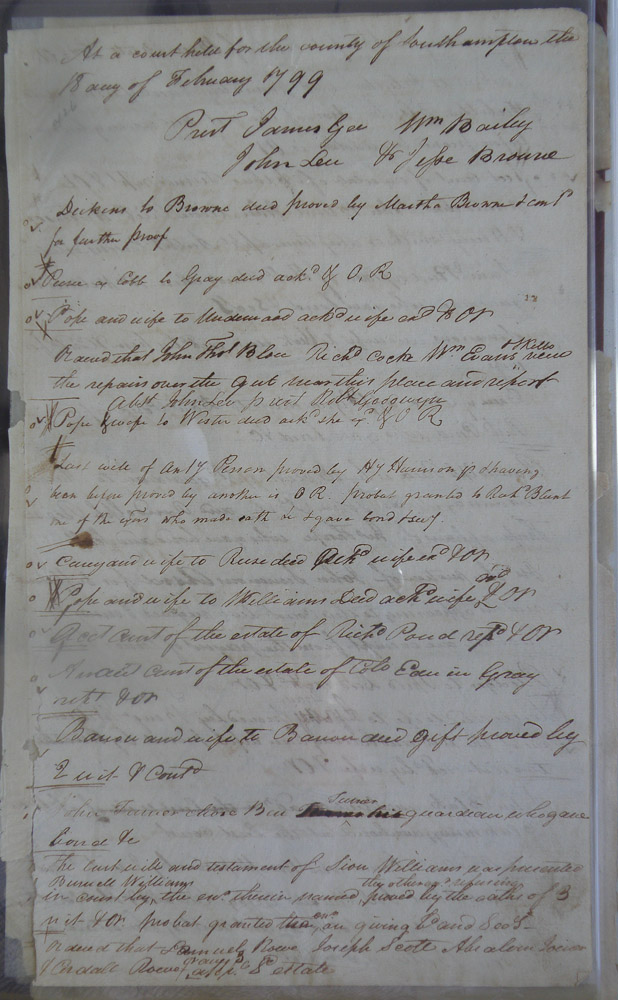 At a court held for the county of Southampton the
18 day of February 1799
Prest James Gee Wm Bailey
John Lee & Jesse Browne
Deckens to Browne deed proved by Martha Browne & contd
for further proof
Cobb to Gray deed ackd & O, R
Pope and wife to Underwood ackd wife exd & OR
Ordered that John Thos Blow Richd Cocke Wm Evans & Kello view
the repairs over the gut near this place and report
Abst John Lee prest Robt Goodwyn
Pope & wife to Wester deed ackd she exd & O R
Last will of Anty Person proved by Hy Harrison & having
been before proved by another is O R. probat granted to Blunt
one of the exors who made oath & gave bond & secy
Cary and wife to Rose deed ackd wife exd & OR
Pope and wife to Williams deed ackd wife exd & OR
acct curt of the estate of Richd Pond retd & OR
acct curt of the estate of Colo Edwin Gray
retd & OR
Barrow and wife to Barrow deed gift proved by
2 wit & contd
Turner chose Ben Turner his guardian who gave
bond &c
The last will and testament of Sion Williams was presented
Burwell Williams the other exr refusing
in court by the exr therein named, proved by the oaths of 3
wit & OR probat granted the exr on giving bd and secy
Ordered that Samuel Rowe Joseph Scott Absalom Joiner
& Cordall Rowe or any 3 appr Sd estate